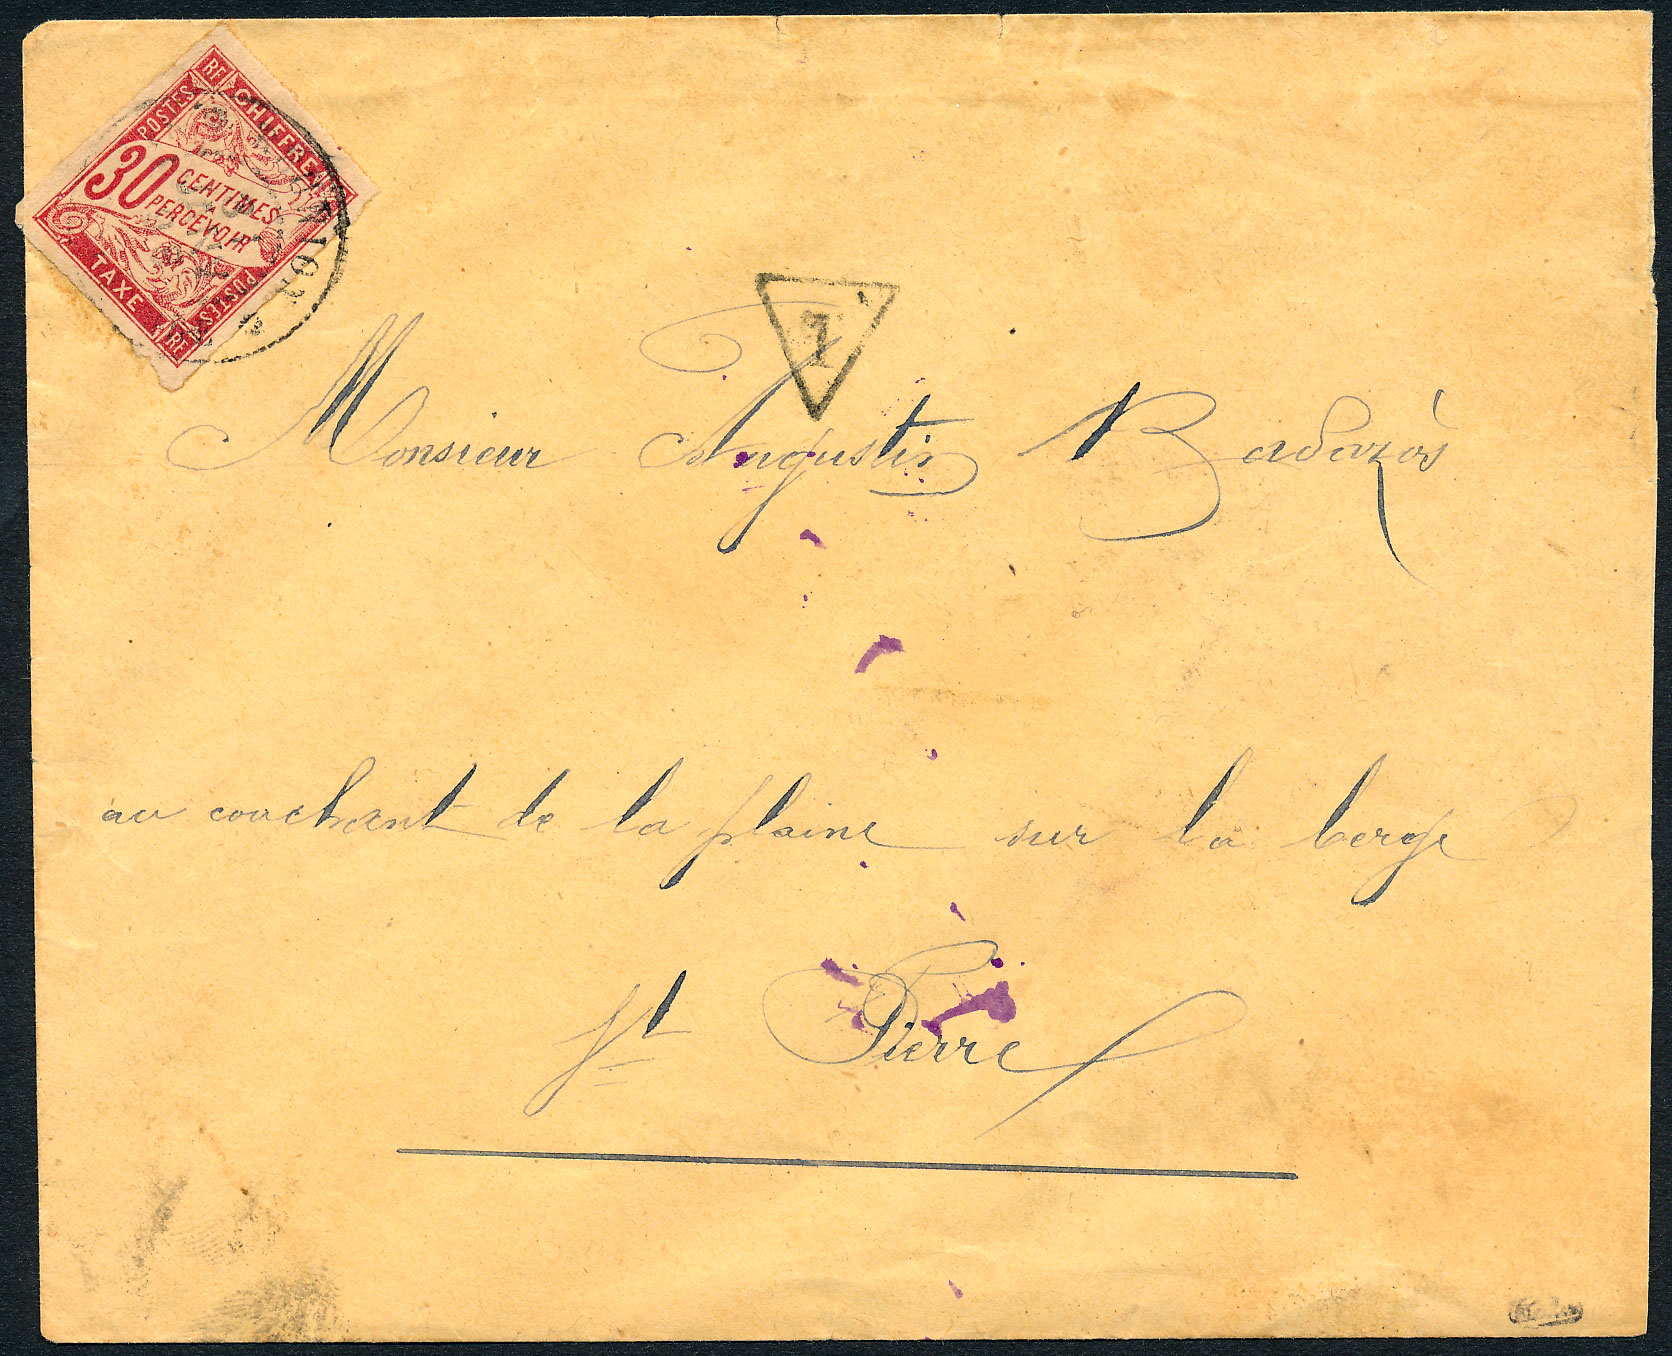 RF
CHIFFRE
POSTES
30 CENTIMES
A
PERCEVOIR
TAXE
POSTES
RF
T
Monsieur Augustin Badazós
au couchant de la plaine sur la berge
St Pierre